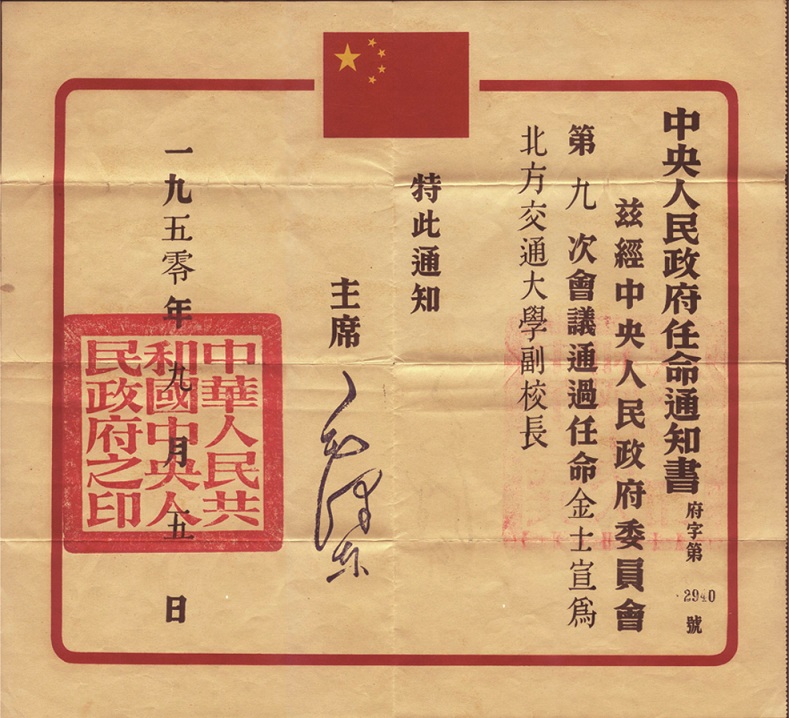 中央人民政府任命通知書
府字第2940號
茲經中央人民政府委員會
第九次會議通過任命金士宣爲
北方交通大學副校長
特此通知
主席
毛澤东
一九五零年九月五日
中華人民共
和國中央人
民政府之印